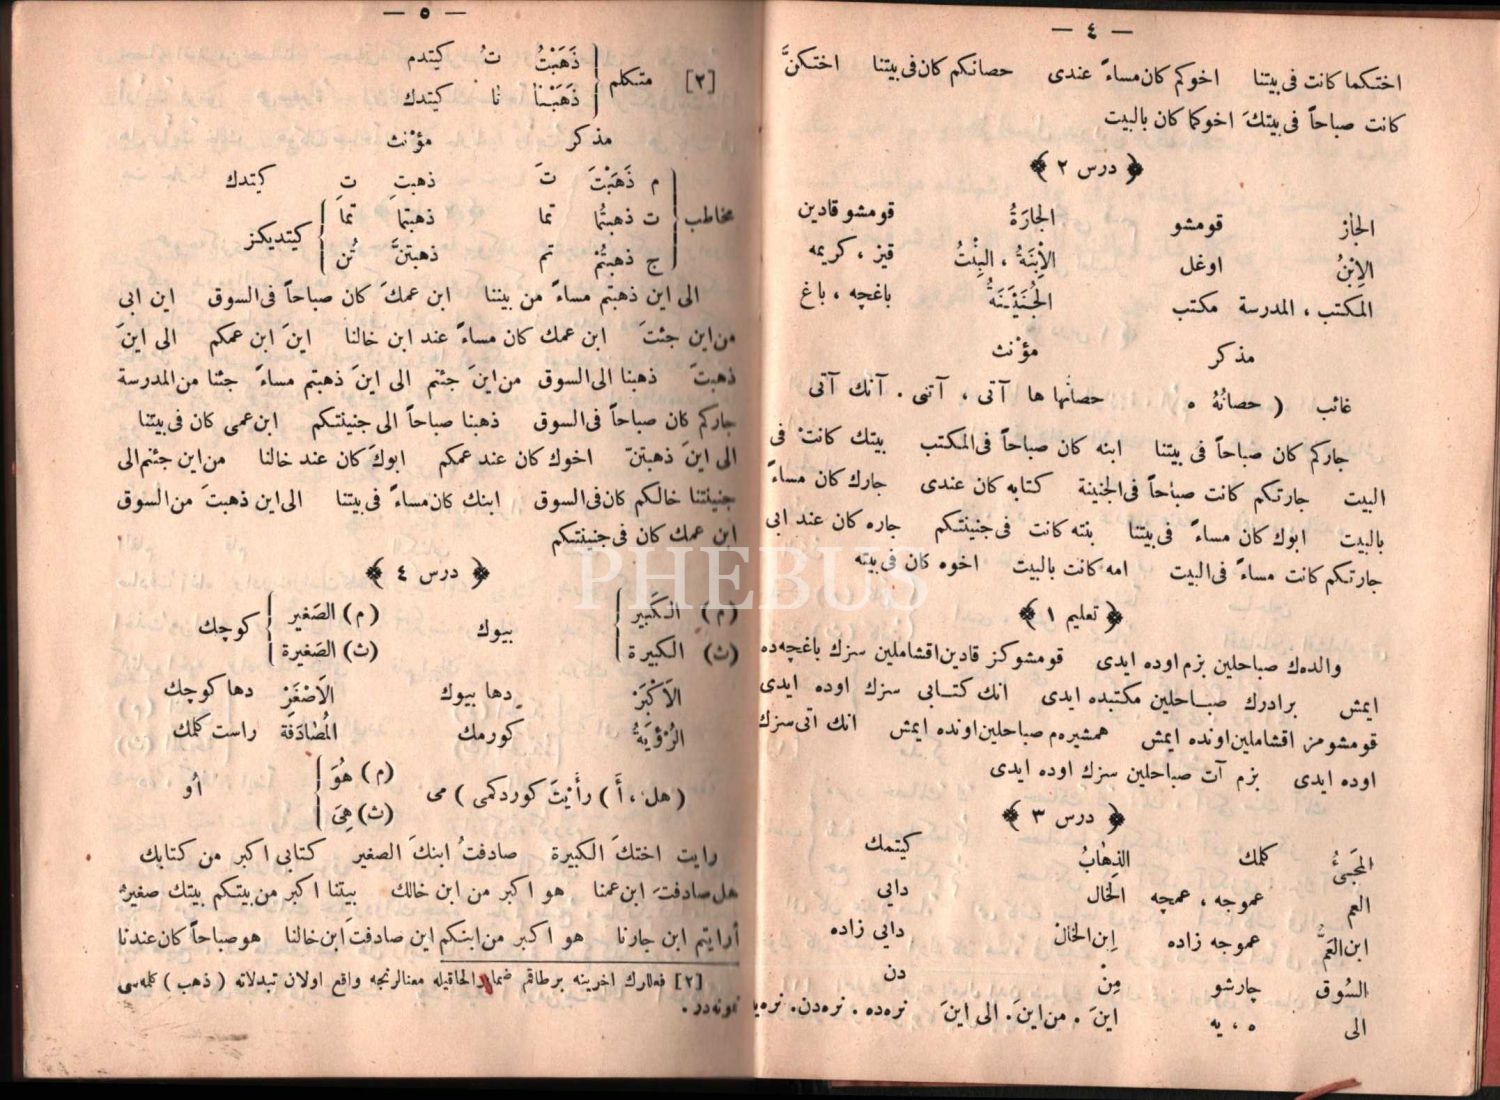 — ٤ —
اختكما كانت فى بيتنا اخوكم كان مساءً عندى حصانكم كان فى بيتنا اختكنَّ
كانت صباحاً فى بيتكَ اخوكما كان بالبيت
﴿ درس ٢ ﴾
الجار قومشو الجارَةُ قومشو قادين
الاِبْنُ اوغل الاِبْنَةُ ، البِنْتُ قيز ، كريمه
المكتب ، المدرسة مكتب الجُنَيْنَةُ باغچه ، باغ
مذكر مؤنث
غائب ( حصانُهُ ه حصانُها ها آتى ، آتنى . آنك آتى
جاركم كان صباحاً فى بيتنا ابنه كان صباحاً فى المكتب بيتك كانتْ فى
البيت جارتكم كانت صباحاً فى الجنينة كتابه كان عندى جارك كان مساءً
بالبيت ابوك كان مساءً فى بيتنا بنته كانت فى جنينتكم جاره كان عند ابى
جارتكم كانت مساءً فى البيت امه كانت بالبيت اخوه كان فى بيته
﴿ تعليم ١ ﴾
والدهك صباحلين بزم اوده ايدى قومشوكز قادين اقشاملين سزك باغچه‌ده
ايمش برادرك صباحلين مكتبده ايدى انك كتابى سزك اوده ايدى
قومشومز اقشاملين اونده ايمش همشيره‌م صباحلين اونده ايمش انك اتى سزك
اوده ايدى بزم آت صباحلين سزك اوده ايدى
﴿ درس ٣ ﴾
المَجِىءُ كلمك الذِهابُ كيتمك
العم عموجه ، عمچه الخال دايى
ابن العَمُّ عموجه زاده اِبن الخال دايى زاده
السُوق چارشو مِنْ دن
الى ه ، يه اينَ . من اينَ . الى اينَ نره‌ده . نره‌دن. نره‌يه
— ٥ —
[٢] متكلم ذَهَبْتُ تُ كيتدم
ذَهَبْنا نا كيتدك
مذكر مؤنث
مخاطب م ذَهَبْتَ تَ ذهبتِ تِ كيتدك
ث ذهبتُما تما ذهبتما تما كيتديكز
ج ذهبتُمْ تم ذهبتنَّ تُن
الى اين ذهبتم مساءً من بيتنا ابن عمكَ كان صباحاً فى السوق اين ابى
من اين جئتَ ابن عمك كان مساءً عند ابن خالنا اينَ ابن عمكم الى اينَ
ذهبتَ ذهبنا الى السوق من اينَ جئتم الى اينَ ذهبتم مساءً جئنا من المدرسة
جاركم كان صباحاً فى السوق ذهبنا صباحاً الى جنينتكم ابن عمى كان فى بيتنا
الى اينَ ذهبتنّ اخوك كان عند عمكم ابوكَ كان عند خالنا من اين جئتم الى
جنينتنا خالكم كان فى السوق ابنك كان مساءً فى بيتنا الى اين ذهبتَ من السوق
ابن عمك كان فى جنينتكم
﴿ درس ٤ ﴾
(م) الكَبير بيوك (م) الصَغير كوچك
(ث) الكبيرة (ث) الصَغيرة
الاَكْبَرْ دها بيوك الاَصْغَرْ دها كوچك
الرُؤيَةُ كورمك المُصٰادَفَة راست كلمك
( هل ، أَ ) رأَيْتَ كوردكمى ) مى (م) هُوَ اُو
(ث) هِىَ
رايت اختكَ الكبيرة صادفتُ ابنكَ الصغير كتابى اكبر من كتابك
هل صادفتَ ابن عمنا هو اكبر من ابن خالك بيتنا اكبر من بيتكم بيتك صغيرة
أرايتم ابن جارنا هو اكبر من ابنكم اين صادفتَ ابن خالنا هو صباحاً كان عندنا
[٢] فعللرك اخرينه برطاقم ضمائر الحاقيله معنالرنجه واقع اولان تبدلاته ( ذهب ) كله‌سى
نمونه‌در .
PHEBUS